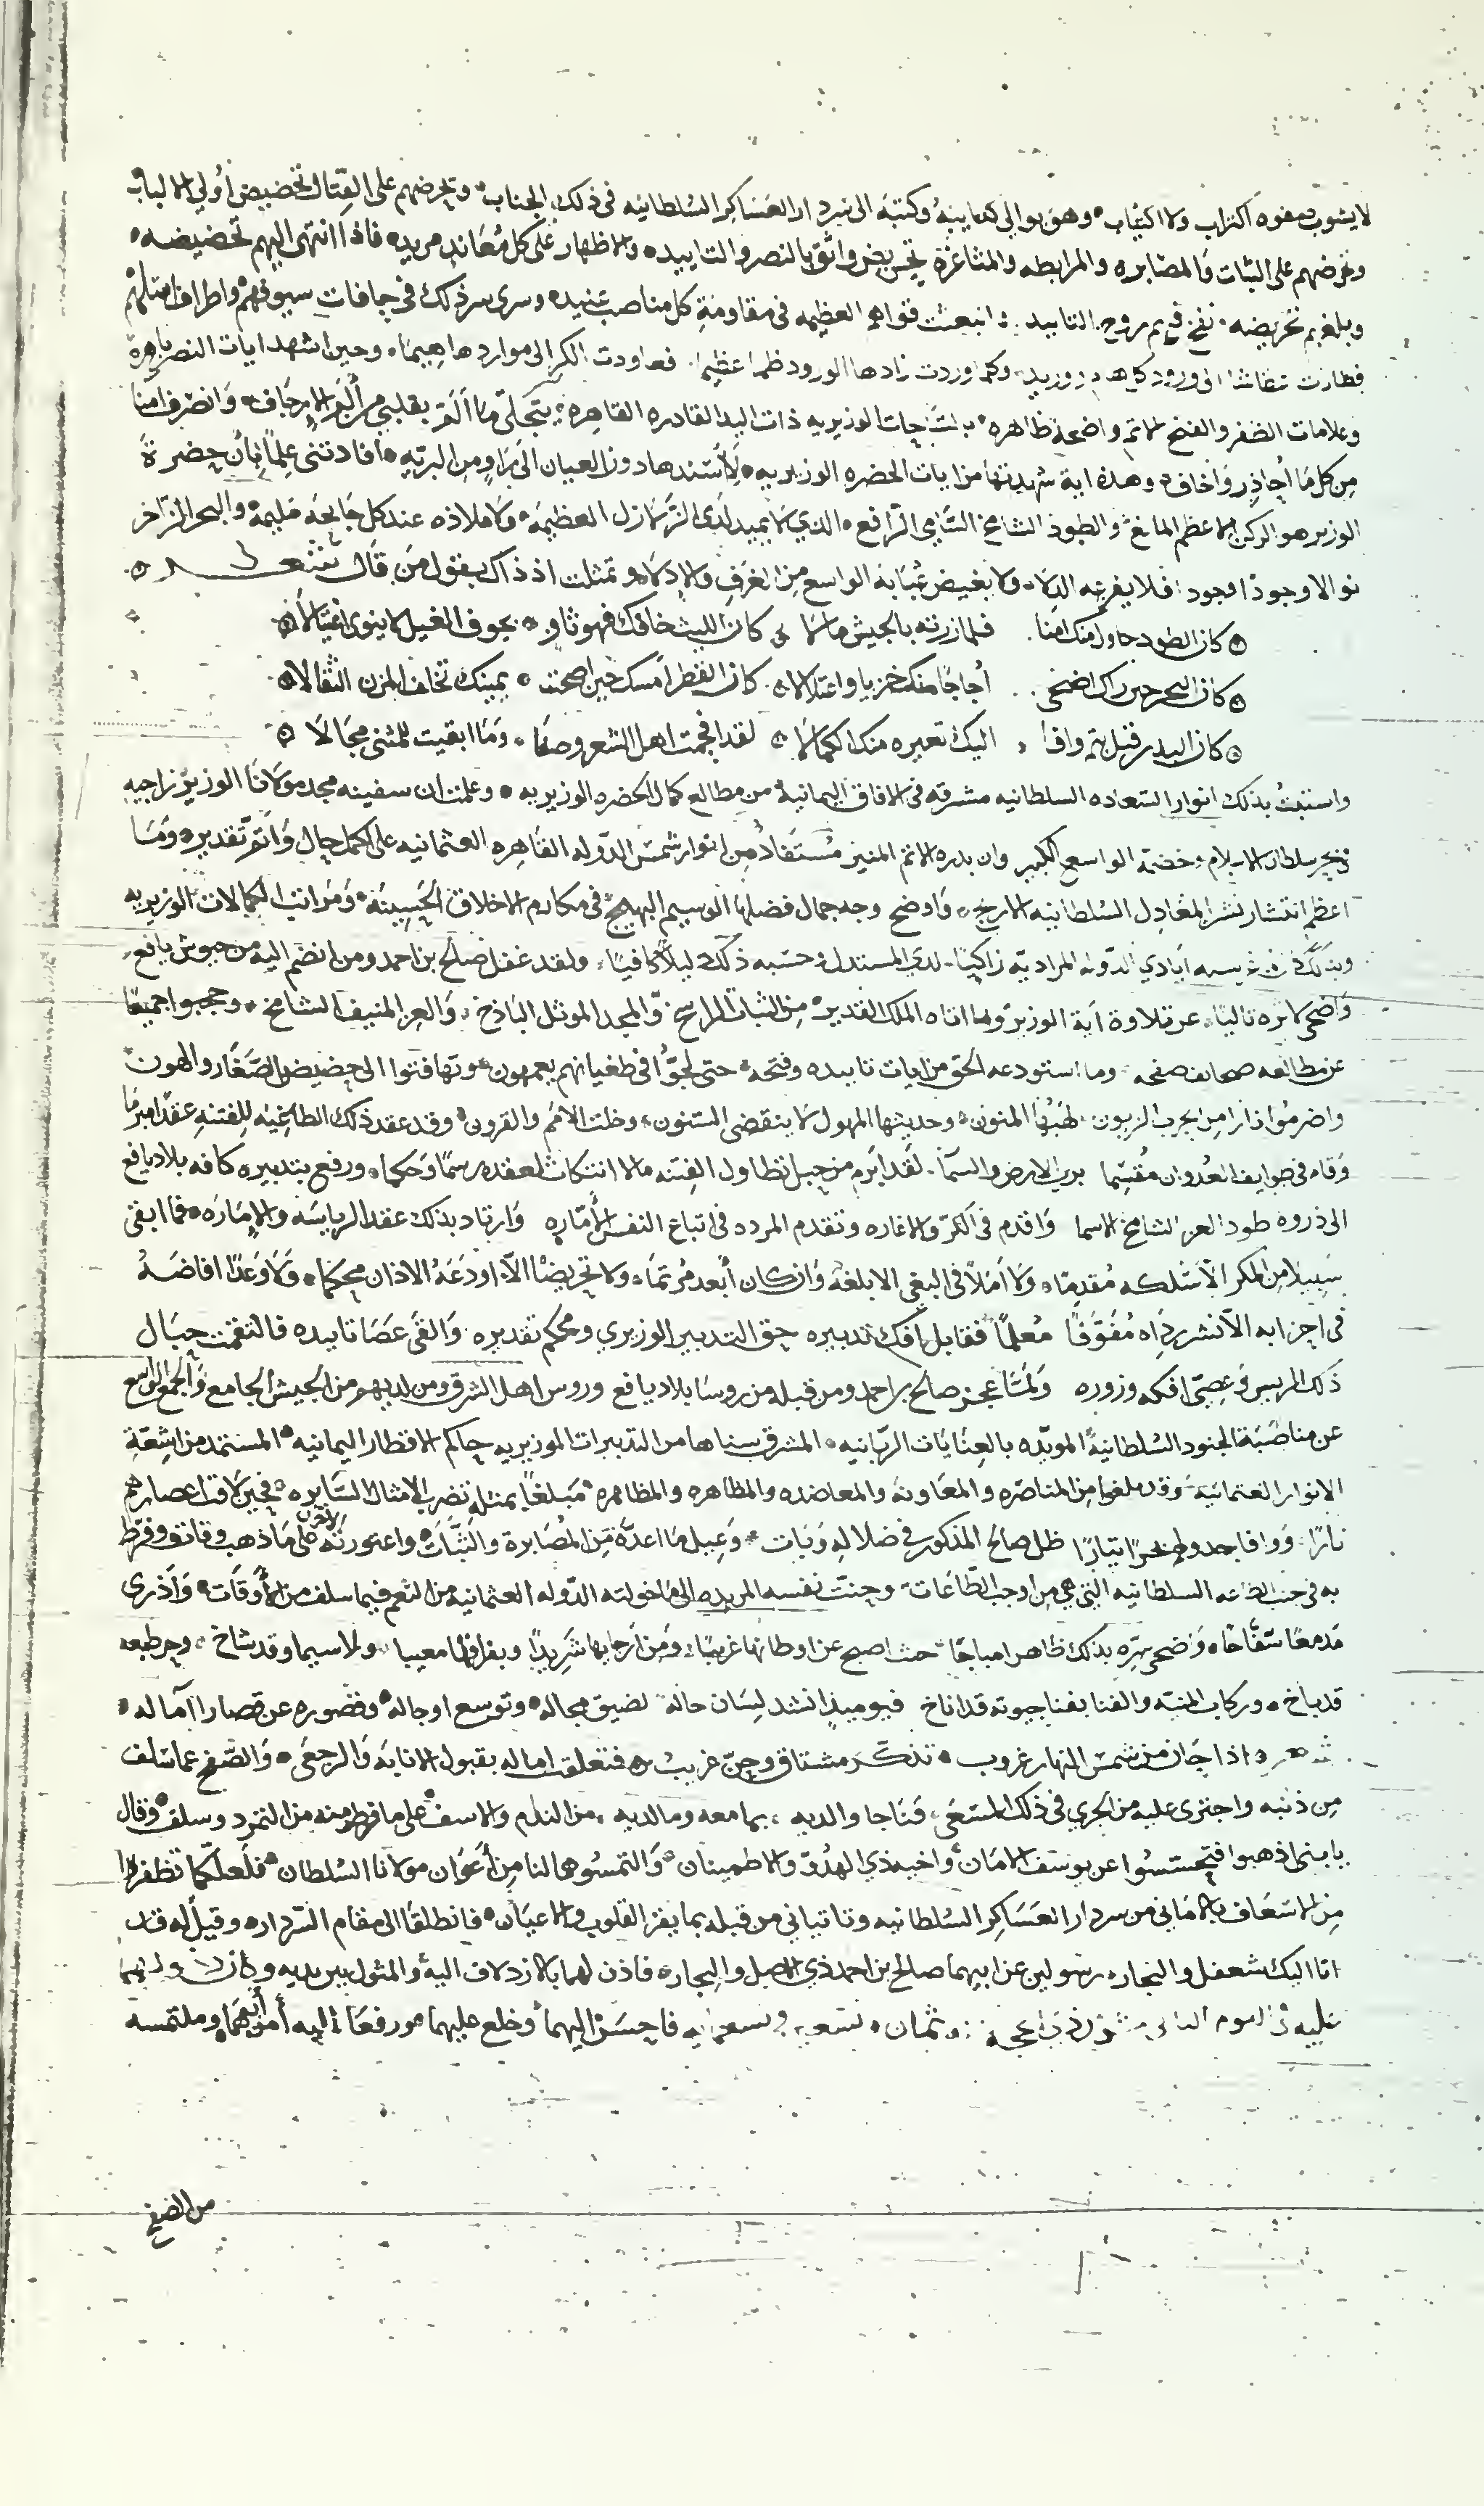 لا يشوب صفوه اكتراب ولا اكتياب وهو يوالي كتابيبه وكتبه الى سردار العساكر السلطانيه في ذلك الجناب وتحرضهم على القتال تحضيض أولي الالباب
وتحرضهم على الثبات والمصابره والمرابطه والمثاغرة تحريض واثق بالنصر والتاييد والاظهار على كل معاند مريد فاذا انتهى اليهم تحضيضه
وبلغهم تحريضه نفخ فيهم روح التاييد انبعثت قواهم العظيمه في مقاومة كل مناصب عنيد وسرى سر ذلك في حافات سيوفهم واطراف اسلهم
فطارت الى ورود وكلما وردت زادها الورود ظما عظيما فعاودت الكر الى مواردها هيما وحين اشهد ايات النصر باهرة
وعلامات الظفر والفتح الاتم واضحة ظاهره الوزيريه ذات اليد القادره القاهره يتجلى ما ألم بقلبي من ألم الارجاف وانصرف امنا
من كل ما أحاذر وأخاف وهذه اية شهدتها من ايات الحضره الوزيريه لأسندها دون العيان الى راو من البريه أفادتني علما بأن حضرة
الوزير هو الركن الاعظم المانع والطود الشامخ السامي الرافع الذي لا يميد لدى الزلازل العظيمه ولا ملاذه عند كل جائحة مليمة والبحر الزاخر
نوالا وجودا وجود افلا يفرعه الدلاء ولا يغيض عبابه الواسع من الغرف والادلاء وتمثلت اذ ذاك بقول من قال شعر
كان الطود حاول منك امنا فلما زرته بالجيش مالا كان الليث خافك فهو ثاو بجوف الغيل لا ينوي اغتيالا
كان البحر حين راك اضحى أجاجا منك خزيا واعتلالا كان القطر أمسك حين اضحت يمينك تخلف المزن الثقالا
كان البدر قبل تم وافا اليك تعيره منك الكمالا لقد افحمت اهل الشعر وصفا وما ابقيت للمثنى مجالا
واستبنت بذلك انوار السعاده السلطانيه مشرقه في الافاق اليمانية من مطالع كمال الحضره الوزيريه وعلمت ان سفينه مجد مولانا الوزير زاجيه
في بحر سلطان الاسلام وخضمه الواسع الكبير وان بدره الاتم المنير مستفاد من انوار شمس الدوله القاهره العثمانيه على اكمل حال وأتم تقدير وما
اعظم انتشار نشر المعادل السلطانيه الاريج وأوضح وجه جمال فضلها الوسيم البهيج في مكارم الاخلاق الحسينة ومراتب الكمالات الوزيريه
وبذلك ايادي الدوله المراديه زاكيا لدى المستدل وحسبه ذلك دليلا كافيا ولقد غفل صالح بن احمد ومن انضم اليه من جيوش يافع
وأضحى لاثره تاليا عن تلاوة آية الوزير وما اتاه الملك القدير من الثبات الراسخ والمجد الموثل الباذخ والعز المنيف الشامخ وحجبوا جميعا
عن مطالعه صحايف صفحه وما استودعه الحق من ايات تاييده وفتحه حتى لجوا في طغيانهم يعمهون وتهافتوا الى حضيض الصغار والهون
واضرموا نارا من الحرب الزبون لهبها المنون وحديثها المهول لا ينقضي السنون وخلت الامم والقرون وقد عقد ذلك الطاغيه للفتنه عقدا مبرما
وقاه في طوايف العدوان مقسما برب الارض والسما لقد ابرم من حبل تطاول الفتنه ما لا انتكاث لعقده رسما وحكما ورفع بتدبيره كافه بلاد يافع
الى ذروه طود العز الشامخ الاسما واقدم في الكر والاغاره وتقدم المرده في اتباع النفس الأماره وارتاد بذلك عقد الرياسه والامارة فما ابقى
سبيلا من المكر الا سلكه مقدما ولا املا في البغي الا بلغه وان كان أبعد مرتما ولا تحريضا الا اودعه الاذان محكما ولا وعدا افاضه
في احزابه الا نشر رداه مفوفا معلما فقابل افك تدبيره حق التدبير الوزيري ومحكم تقديره والقى عصا تاييده فالتقمت حبال
ذلك المريس وعصي افكه وزوره ولما عجز صالح بن احمد ومن قبله من روسا بلاد يافع وروس اهل الشرق ومن لديهم من الجيش الجامع والجمع الواسع
عن مناصبة الجنود السلطانية المويده بالعنايات الربانيه المشرق سناها من التدبيرات الوزيريه حاكم الاقطار اليمانيه المستمد من اشعة
الانوار العثمانية وقد بلغوا من المناصره والمعاونة والمعاضده والمظاهره مبلغا بمثله تضرب الامثال السايره فحين لاقت اعصارهم
نارا ووافا جدولهم بحرا تيارا ظل صالح المذكور في ضلاله وبات وعيل ما اعده من المصابرة والثبات واعتورته الاحزان على ما ذهب وفات وفرط
به في جنب الطاعه السلطانيه التي هي من اوجب الطاعات وحنت نفسه المريده الى ما خولته الدوله العثمانيه من النعم فيما سلف من الأوقات وأذرى
مدمعا سفاحا واضحى سره بذلك ظاهرا مباحا حيث اصبح عن اوطانها غريبا ومن ارحابها شريدا وبفراقها معيبا ولا سيما وقد شاخ وحر طبعه
قد باخ وركاب المنيه والفنا بفنا حيوته قد اناخ فيوميذ انشد لسان حاله لضيق مجاله وتوسع اوجاله وقصوره عن قصارا آماله
شعر اذا حان من شمس النهار غروب تذكر مشتاق وحن غريب فتعلقت اماله بقبول الانابه والرجعى والصفح عما سلف
من ذنبه واجترى عليه من الجري في ذلك المسعى فناجا والديه بما معه وما لديه من الندم والاسف على ما فرط منه من التمرد وسلف وقال
يا بني اذهبوا فتحسسوا عن يوسف الامان واخيه ذي الهدو والاطمينان والتمسوهما لنا من أعوان مولانا السلطان فلعلكما تظفرا
من الاسعاف بالاماني من سردار العساكر السلطانيه وتاتياني من قبله بما يقر القلوب والاعيان فانطلقا الى مقام السرداره وقيل له قد
اتا اليك شعفل والنجار رسولين عن ابيهما صالح بن احمد ذي الاصل والنجار فاذن لهما بالازدلاف اليه والمثول بين يديه وكان
عليه في اليوم من شهر ذي الحجة ثمان وتسعين وتسعمايه فاحسن اليهما وخلع عليهما ورفعا اليه أمر أبيهما وملتمسه
من الصفح